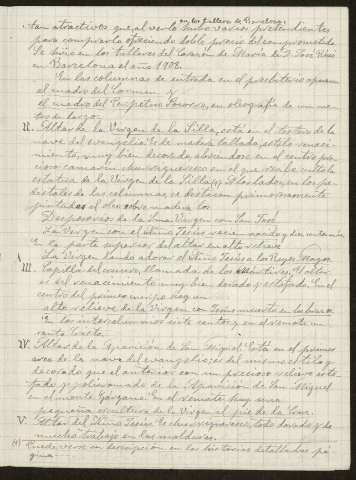 en los talleres de Barcelona
tan atractivos que al verlo hubo varios pretendientes
para comprarla ofreciendo doble precio del comprometido.
Se hizo en los talleres del Corazón de María de D. José Ríus
en Barcelona el año 1908.
En las columnas de entrada en el presbiterio
el cuadro del Carmen y
el cuadro del Perpetuo Socorro, en oleografía de un me-
tro de largo.
II. Altar de la Virgen de la Silla, está en el testero de la
nave del evangelio. Es de madera tallada, estilo renaci-
miento, muy bien decorado, abriéndose en el centro
camarín en el que se venera
estatua de la Virgen de la Silla (1). A los lados, en los pe-
destales de las columnas se destacan primorosamente
pintados al óleo sobre madera los
Desposorios de la Sma. Virgen con San José
La Virgen con el Niño Jesús recién nacido
En la parte superior del altar en alto relieve
La Virgen dando a adorar el Niño Jesús a los Reyes Magos
III. Capilla del crucero, llamada de los Mártires. El altar
es del renacimiento muy bien dorado y estofado. En el
centro del primer cuerpo hay un
alto relieve de la Virgen con Jesús muerto en los brazos
En los intercolumnios siete santos y en el remate un
santo Cristo
IV. Altar de la Aparición de San Miguel. Está en el primer
arco de la nave del evangelio; es del mismo estilo y
decorado que el anterior con un precioso relieve esto-
fado y policromado de la Aparición de San Miguel
en el monte Gárgano. En el remate hay una
pequeña escultura de la Virgen al pie de la Cruz.
V. Altar del Niño Jesús. Es churrigueresco, todo dorado y de
mucho trabajo en las molduras.
(1) Puede verse su descripción en las historias detalladas pá-
gina